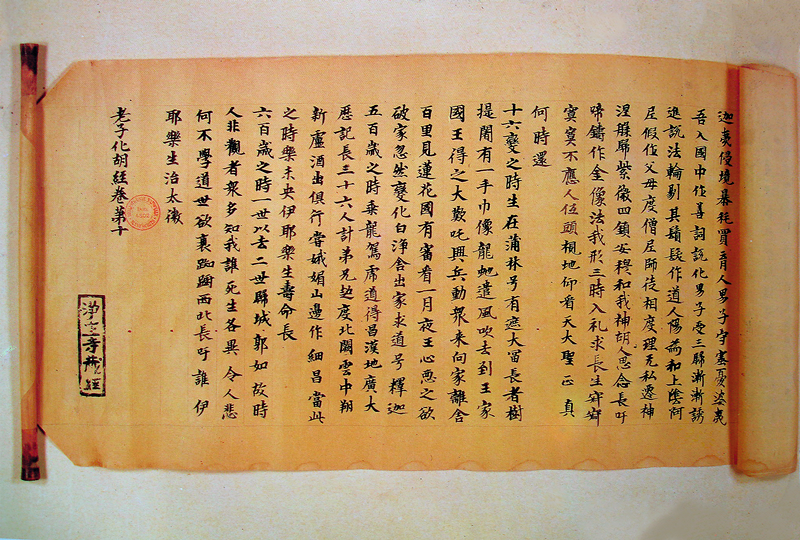 迦夷侵境暴耗買育人男子守塞憂婆夷
吾入國中作善詞說化男子受三歸漸漸誘
進說法輪剔其鬚髮作道人陽為和上陰阿
尼假作父母度僧尼師徒相度理无私遷神
涅槃歸紫微四鎮安穩和我神胡人思念長吁
啼鑄作金像法我形三時入礼求長生穽穽
冥冥不應人伍頭視地仰看天大聖正真
何時還
十六變之時生在蒲林号有遮大富長者樹
提閻有一手巾像龍虵遣風吹去到王家
國王得之大歎吒興兵動眾来向家離舍
百里見蓮花國有審看一月夜王心惡之欲
破家忽然變化白淨舍出家求道号釋迦
五百歲之時乘龍駕虎道得昌漢地廣大
歷記長三十六人計弟兄迎度北闕雲中翔
新盧酒出俱行當娥媚山邊作細昌當此
之時樂未央伊耶樂生壽命長
六百歲之時一世以去二世歸城郭如故時
人非觀者眾多知我誰死生各異令人悲
何不學道世欲衰踟躕西北長吁誰伊
耶樂生治太微
老子化胡經卷第十
淨土寺藏經